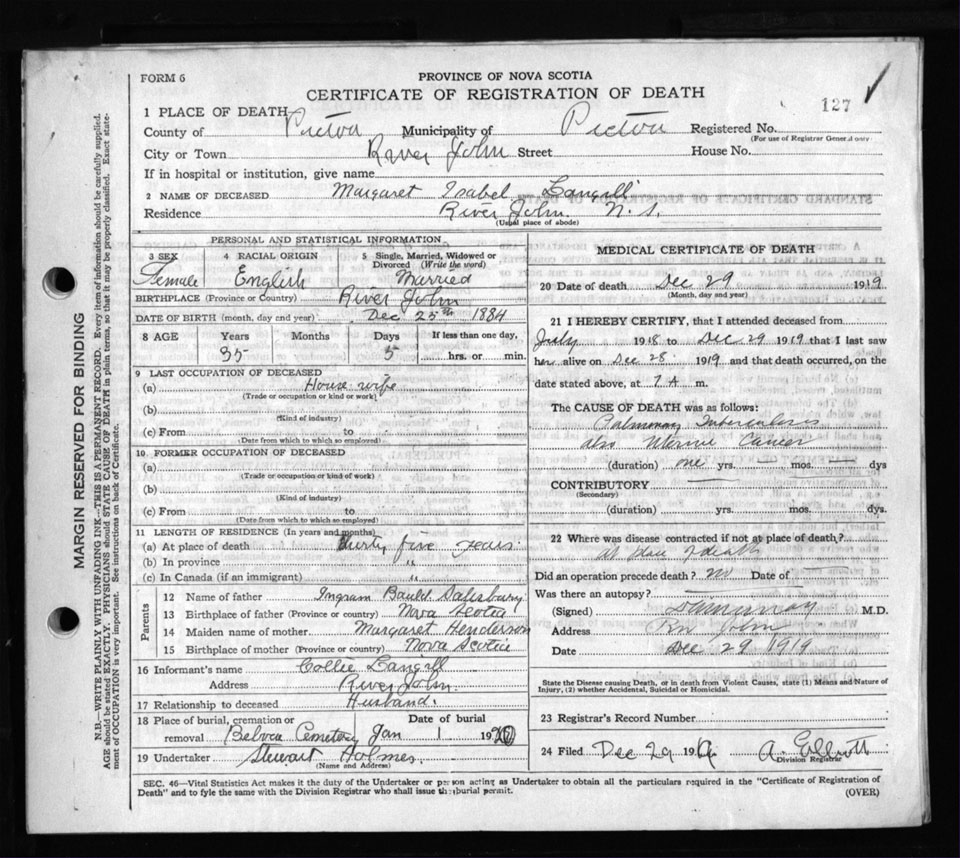 FORM 6
PROVINCE OF NOVA SCOTIA
CERTIFICATE OF REGISTRATION OF DEATH
127
1 PLACE OF DEATH
County of Pictou Municipality of Pictou Registered No.
(For use of Registrar General only
City or Town River John Street House No.
If in hospital or institution, give name
2 NAME OF DECEASED Margaret Isabel Langill
Residence River John N.S.
(Usual place of abode)
PERSONAL AND STATISTICAL INFORMATION
3 SEX 4 RACIAL ORIGIN 5 Single, Married, Widowed or Divorced (Write the word)
Female English Married
BIRTHPLACE (Province or Country) River John
DATE OF BIRTH (month, day and year) Dec 25th 1884
8 AGE Years Months Days If less than one day,
35 5 hrs. or min.
9 LAST OCCUPATION OF DECEASED
(a) House wife
(Trade or occupation or kind or work)
(b)
(Kind of industry)
(c) From to
(Date from which to which so employed)
10 FORMER OCCUPATION OF DECEASED
(a)
(Trade or occupation or kind of work)
(b)
(Kind of industry)
(c) From to
(Date from which to which so employed)
11 LENGTH OF RESIDENCE (In years and months)
(a) At place of death thirty five years
(b) In province "
(c) In Canada (if an immigrant) "
Parents
12 Name of father Ingram Bauld Salisbury
13 Birthplace of father (Province or country) Nova Scotia
14 Maiden name of mother Margaret Henderson
15 Birthplace of mother (Province or country) Nova Scotia
16 Informant's name Collie Langill
Address River John
17 Relationship to deceased Husband.
18 Place of burial, cremation or removal Date of burial
Cemetery Jan 1 1920
19 Undertaker Stewart Holmes
(Name and Address)
MEDICAL CERTIFICATE OF DEATH
20 Date of death Dec 29 1919
(Month, day and year)
21 I HEREBY CERTIFY, that I attended deceased from
July 1918 to Dec 29 1919 that I last saw
her alive on Dec 28 1919 and that death occurred, on the
date stated above, at 7 A m.
The CAUSE OF DEATH was as follows:
Pulmonary Tuberculosis
also Uterine Cancer
(duration) one yrs. — mos. — dys
CONTRIBUTORY
(Secondary)
(duration) yrs. mos. dys.
22 Where was disease contracted if not at place of death?
at place of death
Did an operation precede death? no Date of
Was there an autopsy?
(Signed) M.D.
Address Riv John
Date Dec 29 1919
State the Disease causing Death, or in death from Violent Causes, state (1) Means and Nature of
Injury, (2) whether Accidental, Suicidal or Homicidal.
23 Registrar's Record Number
24 Filed Dec 29 19
Division Registrar
SEC. 46—Vital Statistics Act makes it the duty of the Undertaker or person acting as Undertaker to obtain all the particulars required in the "Certificate of Registration of
Death" and to fyle the same with the Division Registrar who shall issue the burial permit.
(OVER)
MARGIN RESERVED FOR BINDING
N.B.—WRITE PLAINLY WITH UNFADING INK—THIS IS A PERMANENT RECORD. Every item of information should be carefully supplied.
AGE should be stated EXACTLY. PHYSICIANS should STATE CAUSE OF DEATH in plain terms, so that it may be properly classified. Exact state-
ment of OCCUPATION is very important. See instructions on back of Certificate.